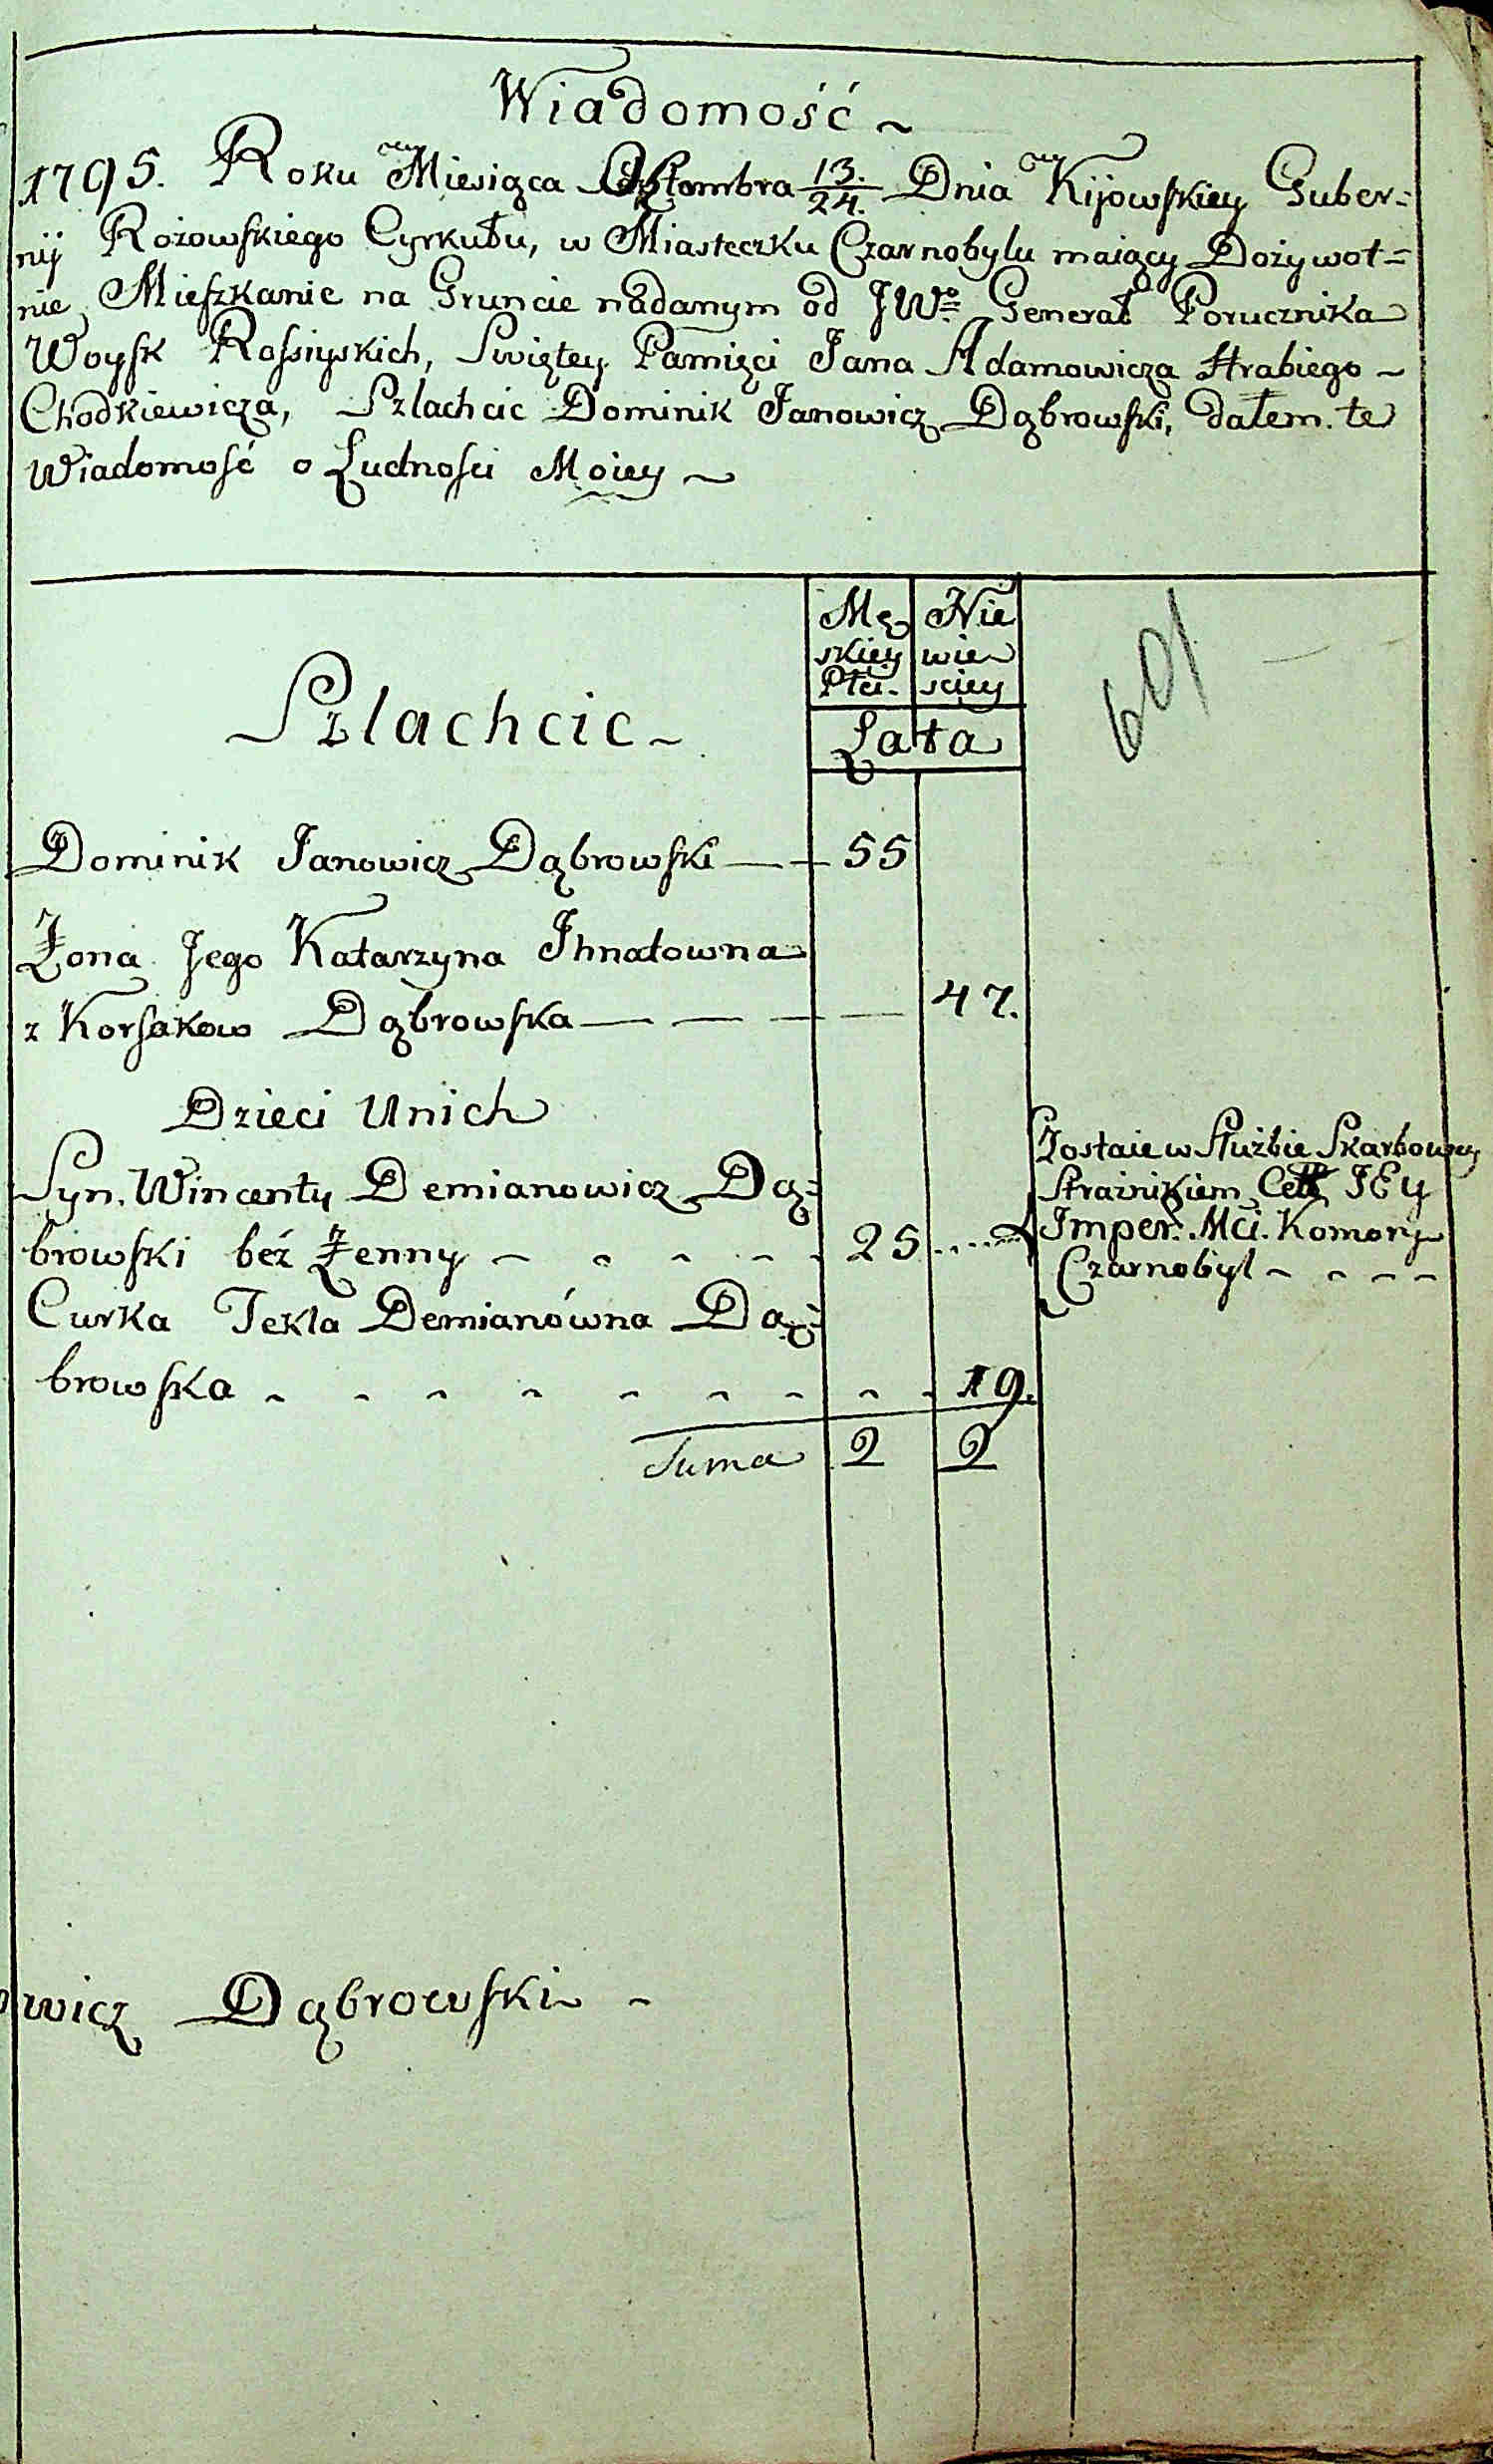 Wiadomość ~
1795. Roku Miesiąca 13./24. Dnia Kijowskiey Guber=
nij Rożowskiego Cyrkułu, w Miasteczku Czarnobylu maiący Dożywot=
nie Mieszkanie na Gruncie nadanym od JWo. Generał Porucznika
Woysk Rossiyskich, Swiętey Pamięci Jana Adamowicza Hrabiego ~
Chodkiewicza, Szlachcic Dominik Janowicz Dąbrowski, dałem. te
Wiadomość o Ludności Moiey ~
Mę
skiey
Płci.
Nie
wie
sciey
Lata
601
Szlachcic ~
Dominik Janowicz Dąbrowski — 55
Żona Jego Katarzyna Ihnatowna
z Korsakow Dąbrowska — — — — 47.
Dzieci Unich
Syn. Wincenty Demianowicz Dą=
browski beź Żenny ~ ~ ~ ~ ~ 25
Zostaie w Służbie Skarbowey
Strażnikiem JEy
Imper. Mci. Komory
Czarnobyl ~ ~ ~ ~
Curka Tekla Demianówna Dą=
browska ~ ~ ~ ~ ~ ~ ~ ~ ~ 19.
Suma 2 2
wicz Dąbrowski ~